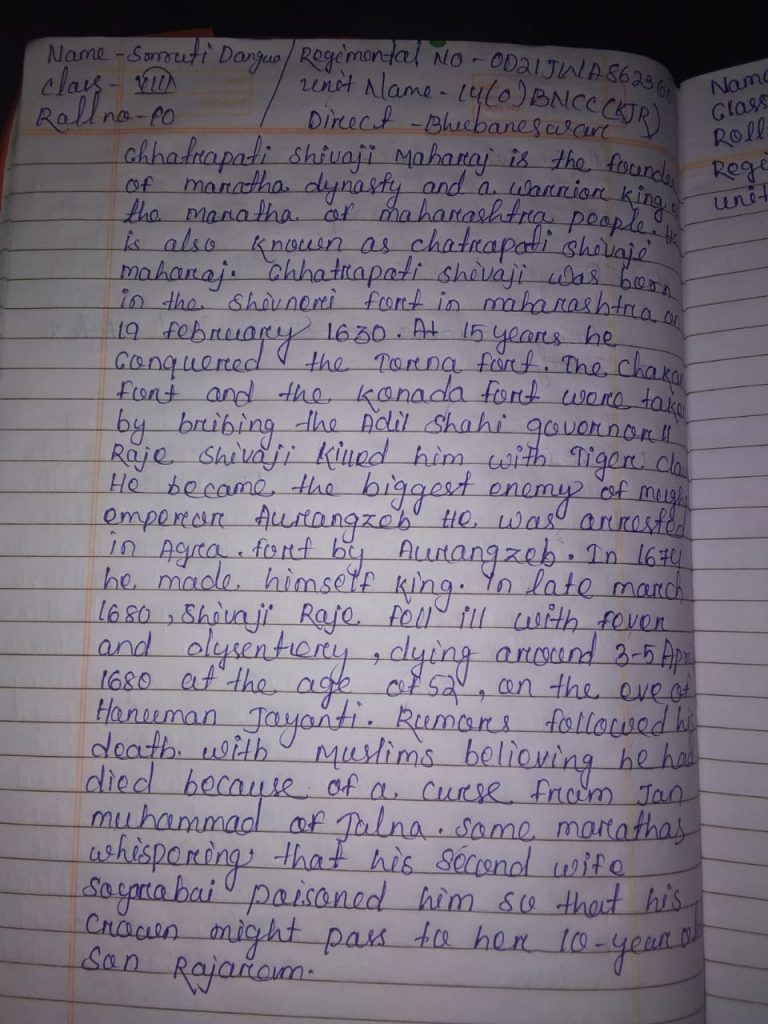 Name - Somruti Dangua / Regimental No - OD21JWA862360
Class - VIII / Unit Name - 14(O) BNCC (KJR)
Roll no - 10 / Direct - Bhubaneswar
Chhatrapati Shivaji Maharaj is the founder
of maratha dynasty and a warrior king of
the maratha of maharashtra people. He
is also known as chatrapati Shivaji
maharaj. Chhatrapati shivaji was born
in the Shivneri fort in maharashtra on
19 february 1630. At 15 years he
Conquered the Torna fort. The Chakan
fort and the Konada fort were taken
by bribing the Adil Shahi governor
Raje Shivaji killed him with Tiger claw
He became the biggest enemy of mugh
emperor Aurangzeb He was arrested
in Agra. fort by Aurangzeb. In 1674
he made himself King. In late march
1680, Shivaji Raje fell ill with fever
and dysentiery, dying around 3-5 Apri
1680 at the age of 52, on the eve of
Hanuman Jayanti. Rumors followed his
death. with Muslims believing he had
died because of a curse from Jan
muhammad of Jalna. Some marathas
whispering that his second wife
Soyrabai poisoned him so that his
Crown might pass to her 10-year old
Son Rajaram.
Name
Class
Roll
Regi
Unit